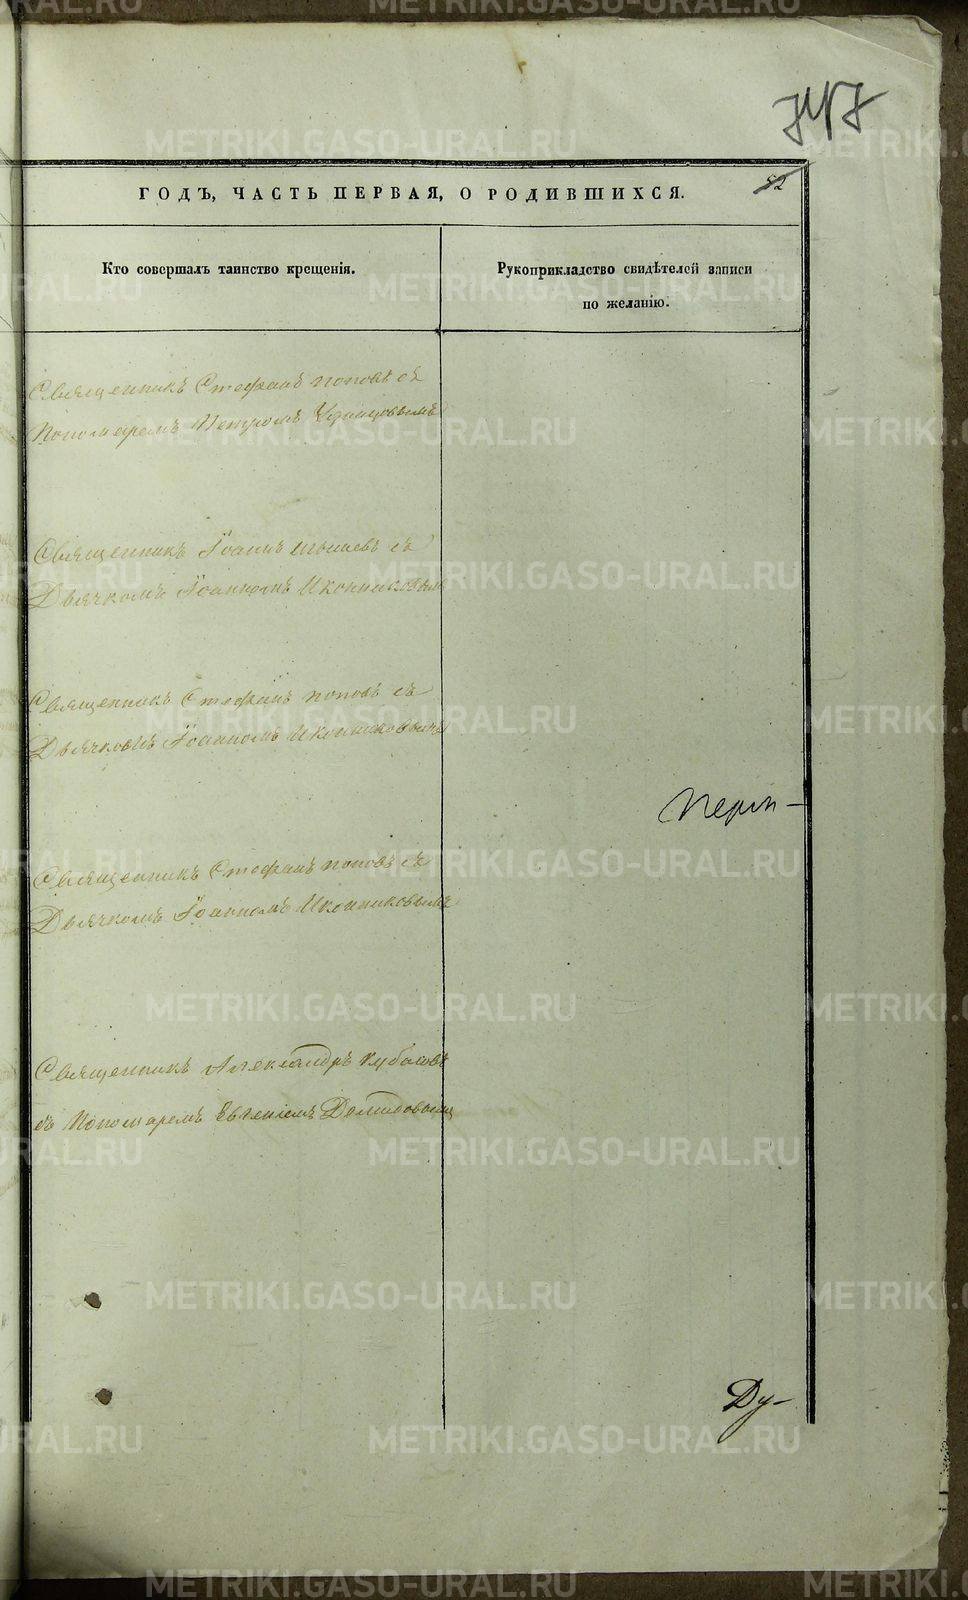 747
52
ГОДЪ, ЧАСТЬ ПЕРВАЯ, О РОДИВШИХСЯ.
Кто совершалъ таинство крещенія.
Рукоприкладство свидѣтелей записи
по желанію.
Священникъ Стефанъ поповъ съ
Пономаремъ Петромъ Удинцовымъ
Священникъ Іоаннъ съ
Дьячкомъ Іоанномъ Иконниковым
Священникъ Стефанъ поповъ съ
Дьячкомъ Іоанномъ Иконниковымъ
Священникъ Стефанъ поповъ съ
Дьячкомъ Іоанномъ Иконниковымъ
Священникъ Александръ
съ Пономаремъ Евгеніемъ
Ду-
METRIKI.GASO-URAL.RU